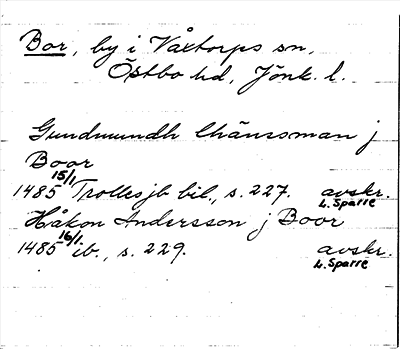 Bor, by i Våxtorps sn,
Östbo hd, Jönk. l.
Gundmundh lhänsman j
Boor
15/1
1485 Trollesjb bil., s. 227. avskr.
L. Sparre
Håkon Andersson j Boor
16/1.
1485 ib., s. 229. avskr.
L. Sparre